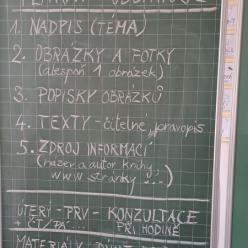 1. NADPIS (TÉMA)
2. OBRÁZKY A FOTKY
(alespoň 1 obrázek)
3. POPISKY OBRÁZKŮ
4. TEXTY - čitelné, pravopis
5. ZDROJ INFORMACÍ
(název a autor knihy,
www stránky ...)
ÚTERÝ - PRV - KONZULTACE
+ ČT/PÁ... PŘI HODINĚ
MATERIÁLY